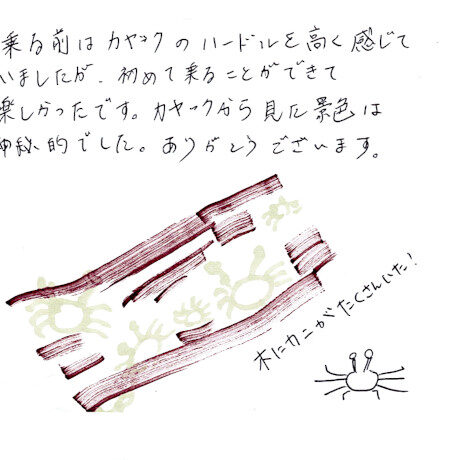 乗る前はカヤックのハードルを高く感じて
いましたが、初めて乗ることができて
楽しかったです。カヤックから見た景色は
神秘的でした。ありがとうございます。
木にカニがたくさんいた!